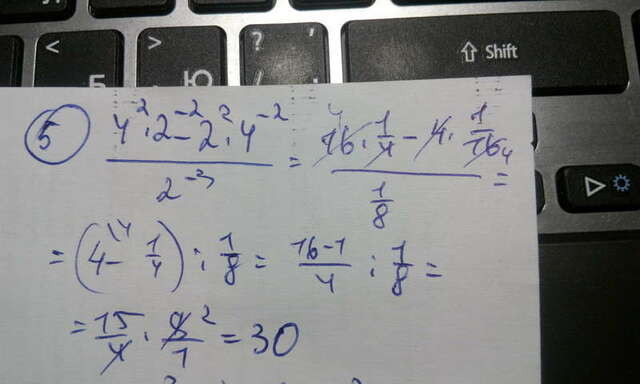 < > ? , ⇧ Shift
Б Ю /
5 (4² · 2⁻² - 2² · 4⁻²) / 2⁻³ = (16 · 1/4 - 4 · 1/16) / (1/8) =
= (4 - 1/4) : 1/8 = (16-1)/4 : 1/8 =
= 15/4 · 8/1 = 30